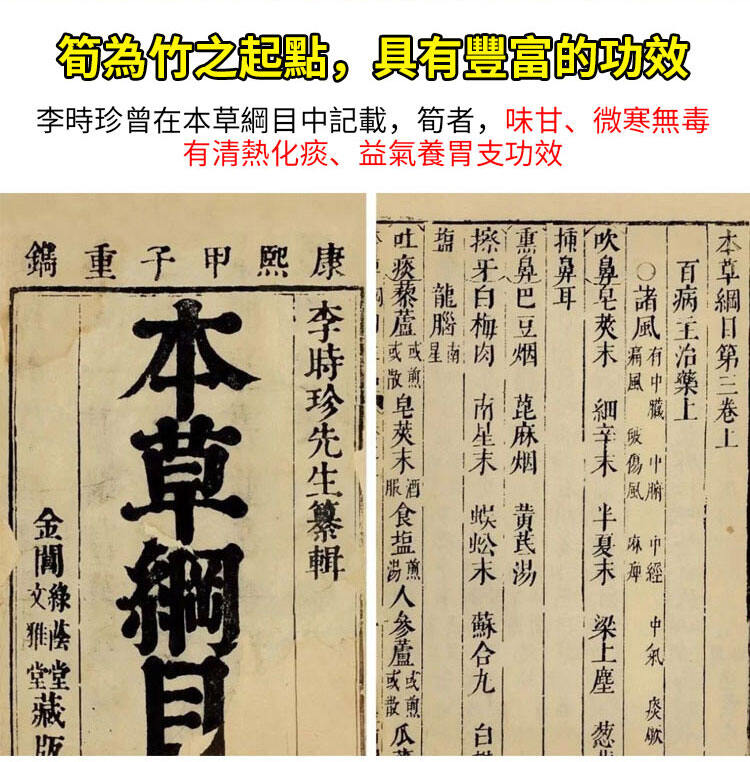 筍為竹之起點，具有豐富的功效
李時珍曾在本草綱目中記載，筍者，味甘、微寒無毒
有清熱化痰、益氣養胃支功效
康熙甲子重鐫
李時珍先生纂輯
本草綱目
金閶綠蔭堂
文雅堂藏版
本草綱目第三卷上
百病主治藥上
○諸風有中臟 中腑 中經 中氣 痰厥
痛風 破傷風 麻痺
吹鼻皂莢末 細辛末 半夏末 梁上塵 葱
插鼻耳
熏鼻巴豆烟 萞麻烟 黃芪湯
擦牙白梅肉 南星末 蜈蚣末 蘇合丸 白
塩 龍腦南星
吐痰藜蘆或煎或散 皂莢末酒服 食塩煎湯 人參蘆或煎或散 瓜